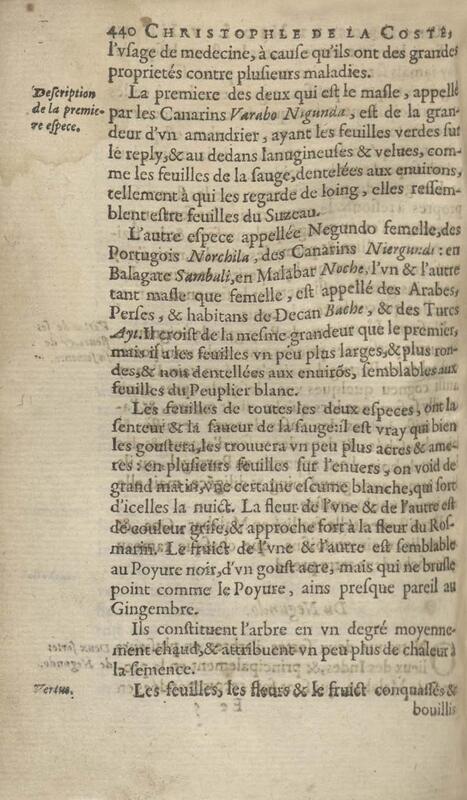 440 CHRISTOPHLE DE LA COSTE,
l'vsage de medecine, à cause qu'ils ont des grandes
proprietés contre plusieurs maladies.
Description
de la premie-
re espece.
La premiere des deux qui est le masle, appellé
par les Canarins Varabo Nigunda, est de la gran-
deur d'vn amandrier, ayant les feuilles verdes sur
le reply, & au dedans lanugineuses & velues, com-
me les feuilles de la sauge, dentelées aux enuirons,
tellement à qui les regarde de loing, elles ressem-
blent estre feuilles du Suzeau.
L'autre espece appellée Negundo femelle, des
Portugois Norchila, des Canarins Niergundi: en
Balagate Sambali, en Malabar Noche, l'vn & l'autre
tant masle que femelle, est appellé des Arabes,
Perses, & habitans de Decan Bache, & des Turcs
Ayt. Il croist de la mesme grandeur que le premier,
mais il a les feuilles vn peu plus larges, & plus ron-
des, & non dentellées aux enuirõs, semblables aux
feuilles du Peuplier blanc.
Les feuilles de toutes les deux especes, ont la
senteur & la saueur de la sauge: il est vray qui bien
les goustera, les trouuera vn peu plus acres & ame-
res: en plusieurs feuilles sur l'enuers, on void de
grand matin, vne certaine escume blanche, qui sort
d'icelles la nuict. La fleur de l'vne & de l'autre est
de couleur grise, & approche fort à la fleur du Ros-
marin. Le fruict de l'vne & l'autre est semblable
au Poyure noir, d'vn goust acre, mais qui ne brusle
point comme le Poyure, ains presque pareil au
Gingembre.
Ils constituent l'arbre en vn degré moyenne-
ment chaud, & attribuent vn peu plus de chaleur à
la semence.
Vertus.
Les feuilles, les fleurs & le fruict conquassés &
bouillis